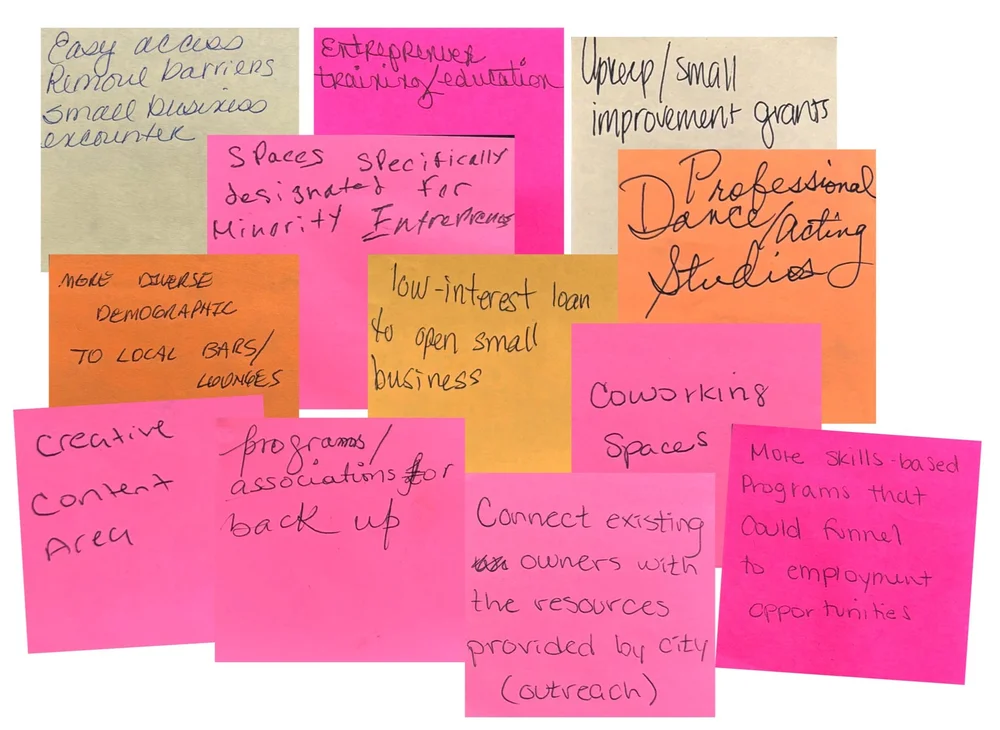 Easy access
Remove barriers
small business
encounter
Entreprenuer
training/education
Upkeep/small
improvement grants
Spaces specifically
designated for
Minority Entreprenuer
Professional
Dance/Acting
Studios
MORE DIVERSE
DEMOGRAPHIC
TO LOCAL BARS/
LOUNGES
low-interest loan
to open small
business
Coworking
Spaces
Creative
Content
Area
programs/
associations for
back up
Connect existing
owners with
the resources
provided by city
(outreach)
More skills-based
Programs that
Could funnel
to employment
opportunities